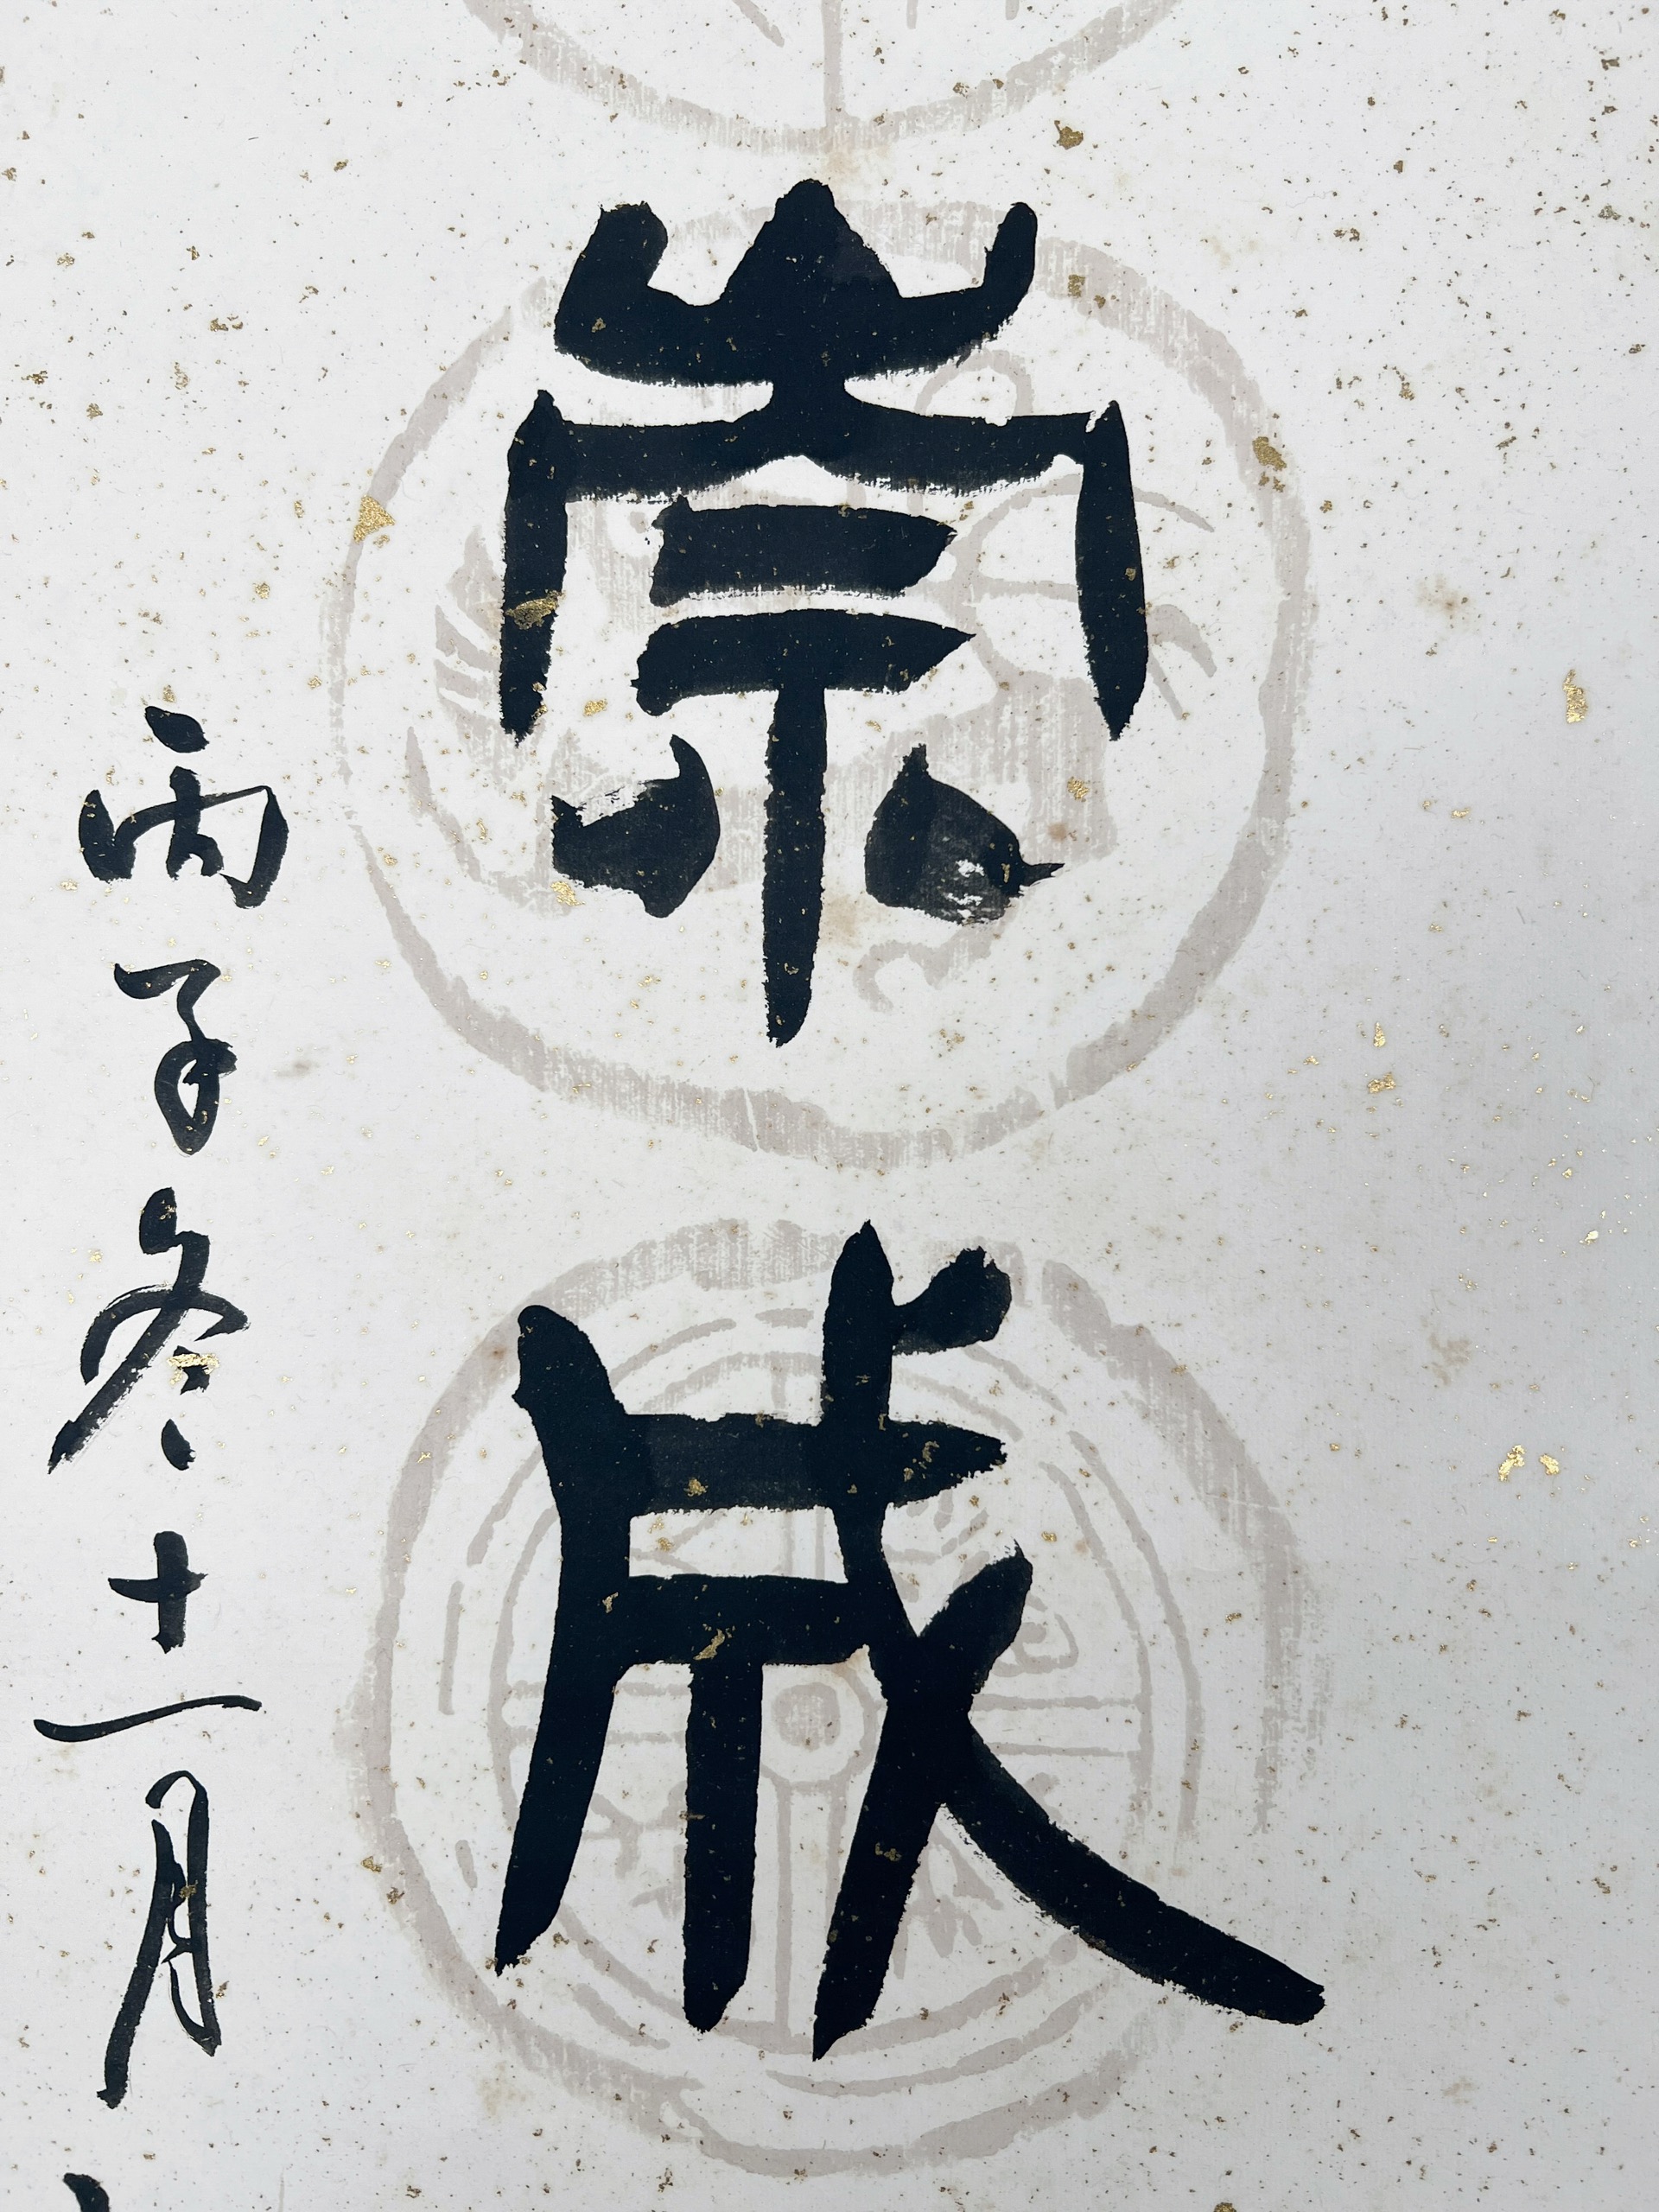 崇成
丙子冬十一月